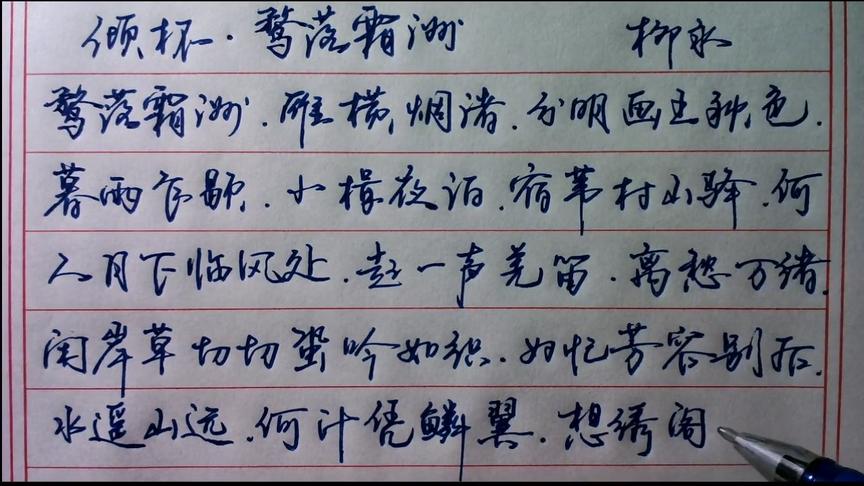 倾杯·鹜落霜洲 柳永
鹜落霜洲.雁横烟渚.分明画出秋色.
暮雨乍歇.小楫夜泊.宿苇村山驿.何
人月下临风处.起一声羌笛.离愁万绪.
闻岸草切切蛩吟如织.为忆芳容别后.
水遥山远.何计凭鳞翼.想绣阁